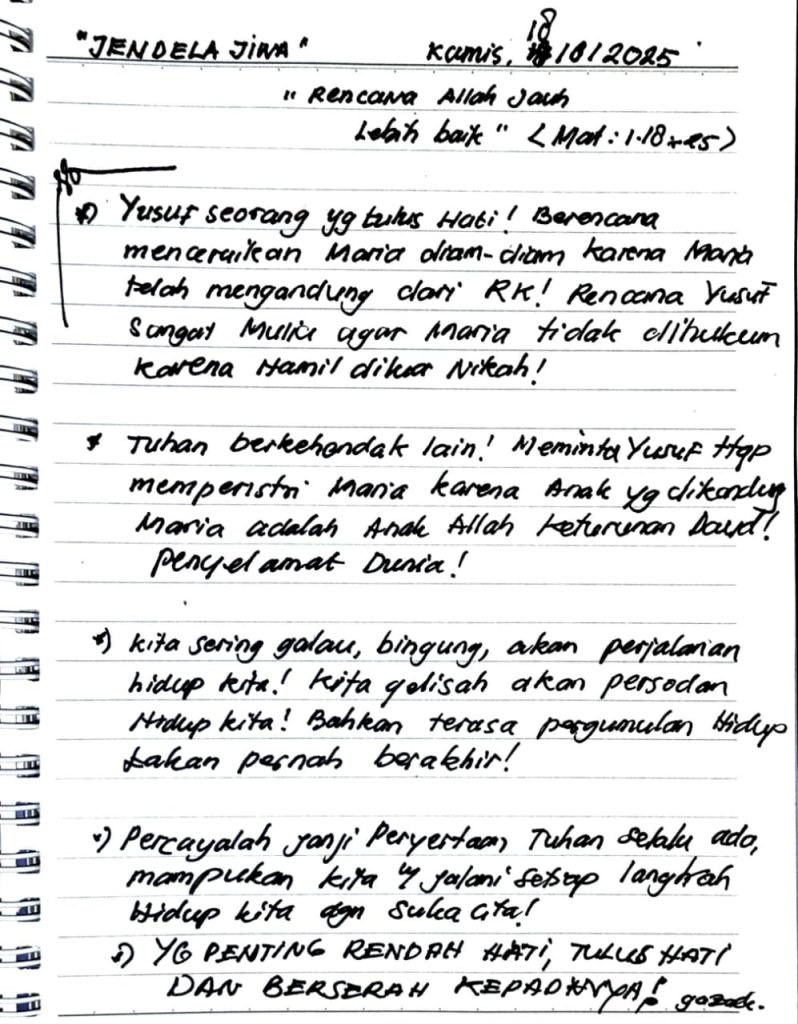 "JENDELA JIWA" Kamis, 18/12/2025
"Rencana Allah Jauh
Lebih baik" (Mat: 1.18-25)
*) Yusuf seorang yg tulus Hati! Berencana
menceraikan Maria diam-diam karena Maria
telah mengandung dari RK! Rencana Yusuf
Sangat Mulia agar Maria tidak dihukum
karena Hamil diluar Nikah!
* Tuhan berkehendak lain! Meminta Yusuf ttp
memperistri Maria karena Anak yg dikandung
Maria adalah Anak Allah keturunan Daud!
Penyelamat Dunia!
*) kita sering galau, bingung, akan perjalanan
hidup kita! Kita gelisah akan persoalan
Hidup kita! Bahkan terasa pergumulan Hidup
takan pernah berakhir!
*) Percayalah janji Penyertaan Tuhan selalu ada,
mampukan kita u/ jalani setiap langkah
Hidup kita dgn suka cita!
*) YG PENTING RENDAH HATI, TULUS HATI
DAN BERSERAH KEPADANYA!